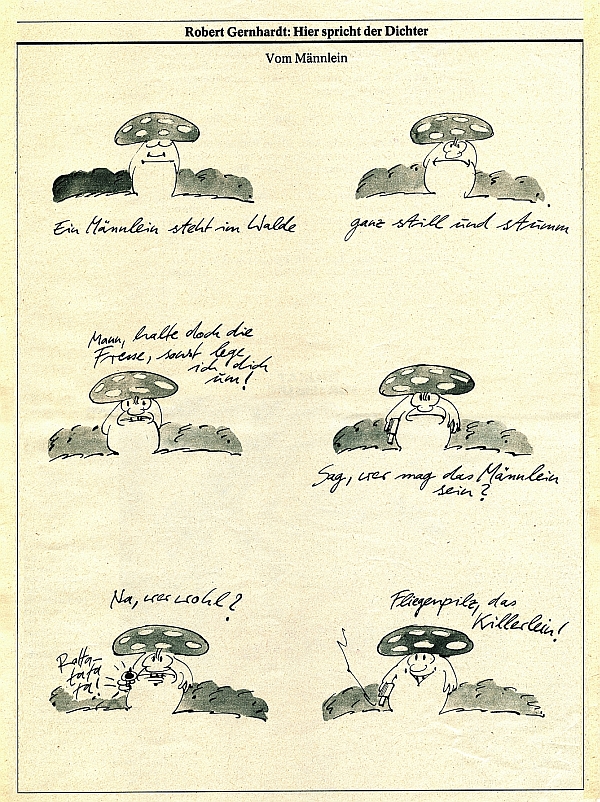 Robert Gernhardt: Hier spricht der Dichter
Vom Männlein
Ein Männlein steht im Walde
ganz still und stumm
Mann, halte doch die
Fresse, sonst lege
ich dich
um!
Sag, wer mag das Männlein
sein?
Na, wer wohl?
Ratta-
tata
ta!
Fliegenpilz, das
Killerlein!